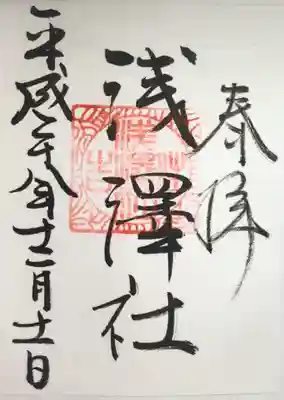 奉拝
浅澤社
平成二十八年十二月十一日